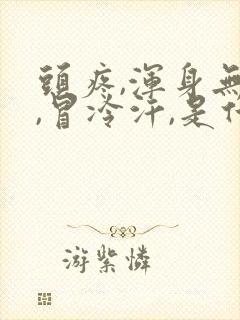 頭疼,渾身無
,冒冷汗,是
游紫憐